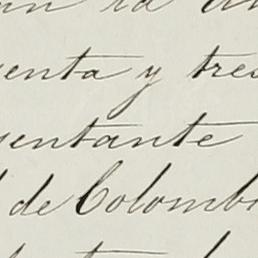 en la
enta y tres
entante
de Colombi